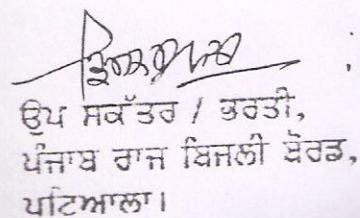 ਉਪ ਸਕੱਤਰ / ਭਰਤੀ,
ਪੰਜਾਬ ਰਾਜ ਬਿਜਲੀ ਬੋਰਡ,
ਪਟਿਆਲਾ।